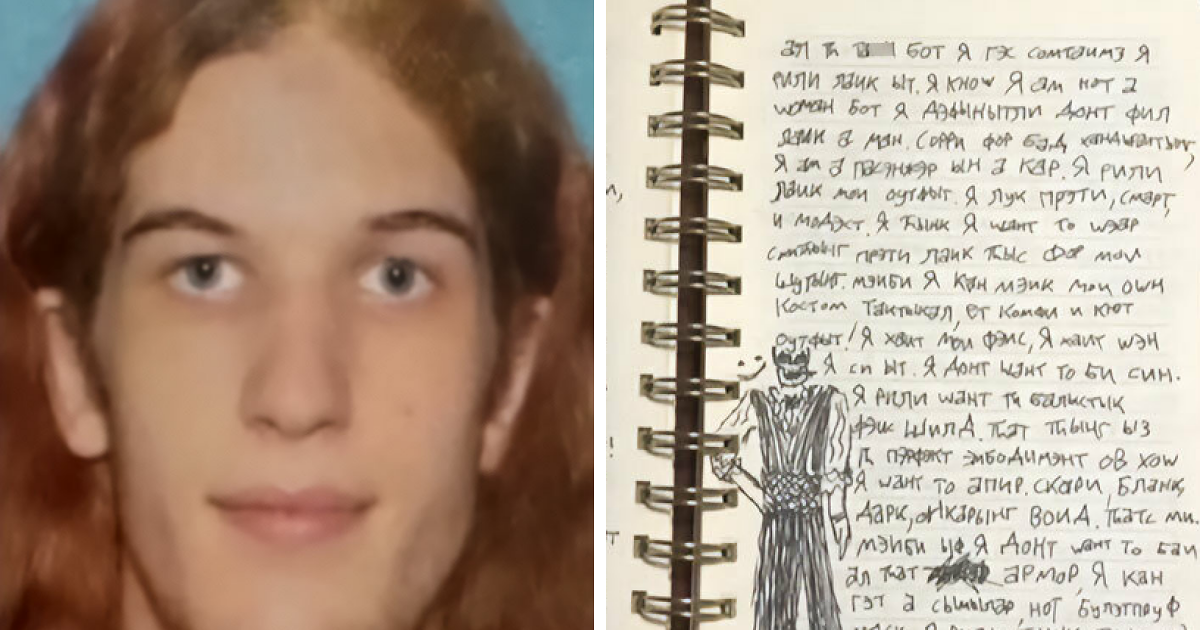 БОТ Я ГЭС СОМТАИМЗ Я
РИЛИ ЛАИК ЫТ. Я KNOW Я AM НОТ A
WOMAN БОТ Я ДЭФЫНЫТЛИ ДОНТ ФИЛ
ЛАИК A МАН. СОРРИ ФОР БАД
Я AM A ПАСЭНЖЭР ЫН A КАР. Я РИЛИ
ЛАИК МОИ ОУТФЫТ. Я ЛУК ПРЭТИ, СМАРТ,
И МОДЭСТ. Я ЋЫНК Я WАНТ ТО WЭАР
ПРЭТИ ЛАИК ЋЫС ФОР МОИ
МЭИБИ Я КАН МЭИК МОИ ОWН
КОСТОМ ТАКТЫКАЛ, ЕТ КОМФИ И КЮТ
ОУТФЫТ! Я ХАИТ МОИ ФЭИС, Я ХАИТ WЭН
Я СИ ЫТ. Я ДОНТ WАНТ ТО БИ СИН.
Я РИЛИ WАНТ Ћ БАЛЫСТЫК
ФЭИС ШИЛД. ЋАТ ЋЫНГ ЫЗ
Ћ ПЭРФЭКТ ЭМБОДИМЭНТ ОВ ХОW
Я WАНТ ТО АПИР. СКАРИ, БЛАНК,
ДАРК, ВОИД. ЋАТС МИ.
МЭИБИ ЫФ Я ДОНТ WАНТ ТО БАИ
АЛ ЋАТ АРМОР, Я КАН
ГЭТ A СЫМЫЛАР, НОТ БУЛЭТПРУФ